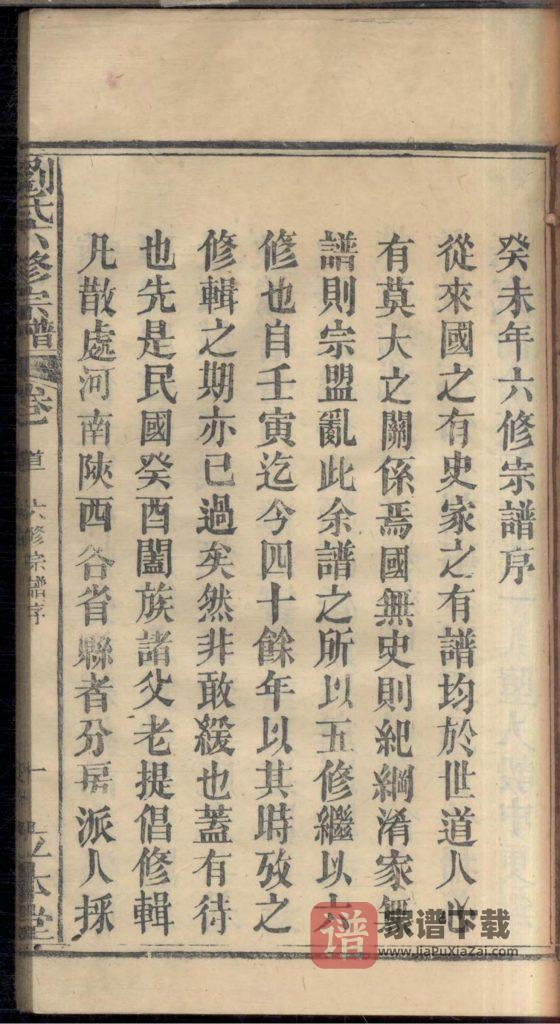 癸未年六修宗譜序
從來國之有史家之有譜均於世道人心
有莫大之關係焉國無史則紀綱淆家無
譜則宗盟亂此余譜之所以五修繼以六
修也自壬寅迄今四十餘年以其時攷之
修輯之期亦已過矣然非敢緩也蓋有待
也先是民國癸酉闔族諸父老提倡修輯
凡散處河南陝西各省縣者分房派人採
劉氏六修宗譜 卷 首 六修宗譜序 一 立本堂
譜 家谱下载
www.JiaPuXiaZai.com